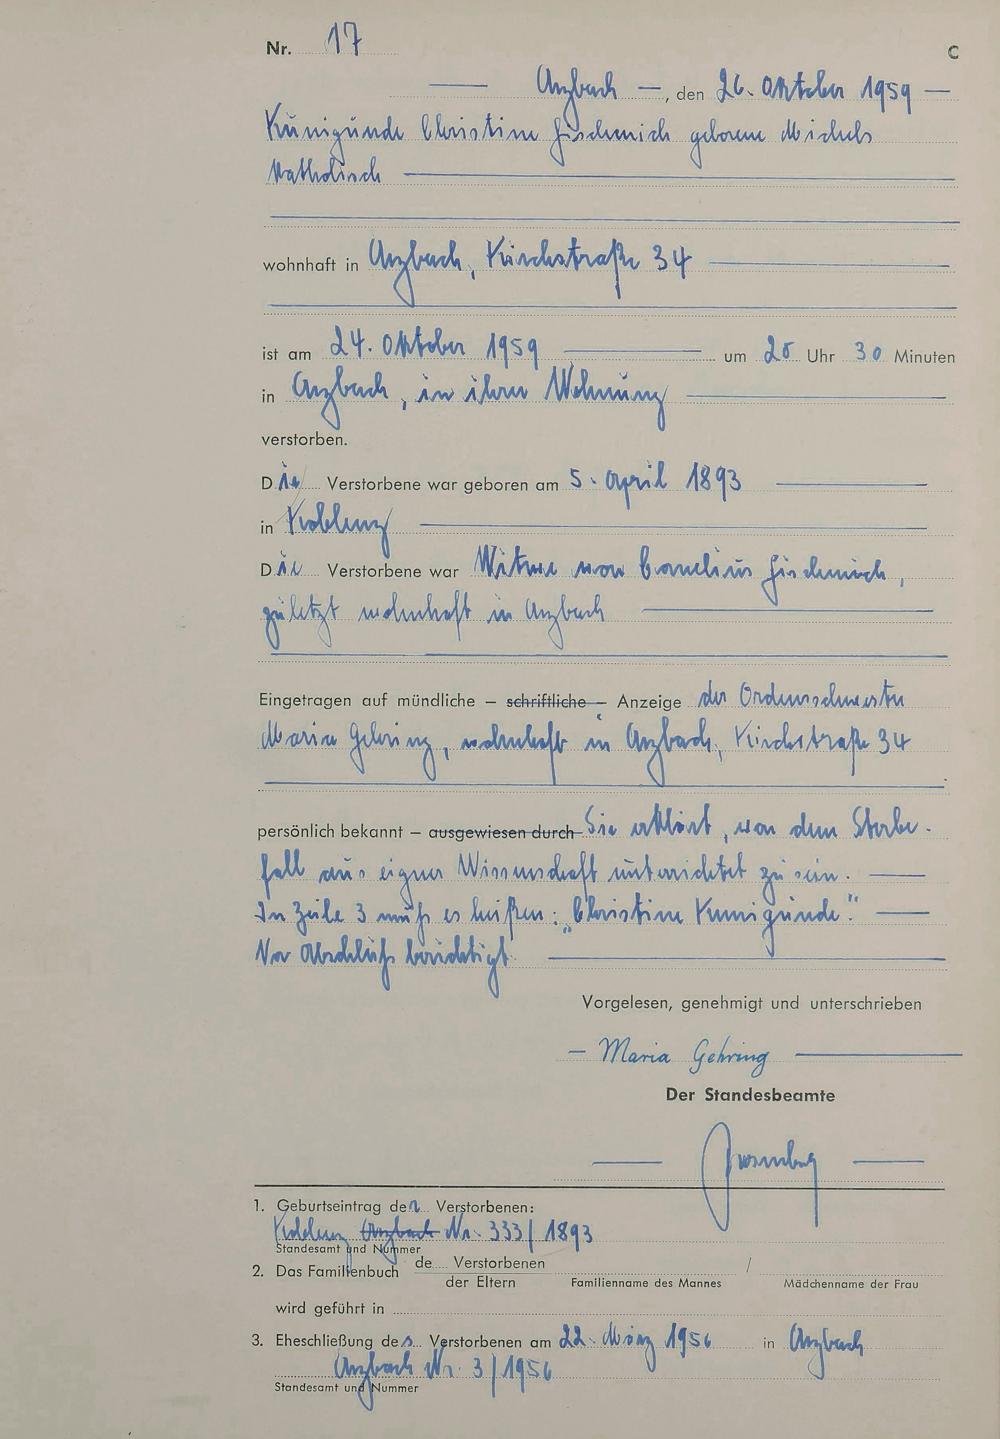 Nr. 17
C
Arzbach, den 26. Oktober 1959
Kunigunde Christine Fischenich geborene Michels
Katholisch
wohnhaft in Arzbach, Kirchstraße 34
ist am 24. Oktober 1959 um 20 Uhr 30 Minuten
in Arzbach, in ihrer Wohnung
verstorben.
Die Verstorbene war geboren am 5. April 1893
in Koblenz
Die Verstorbene war Witwe von Cornelius Fischenich,
zuletzt wohnhaft in Arzbach
Eingetragen auf mündliche – schriftliche – Anzeige der Ordensschwester
Maria Gehring, wohnhaft in Arzbach, Kirchstraße 34
persönlich bekannt – ausgewiesen durch Sie erklärt, von dem Sterbe-
fall aus eigner Wissenschaft unterrichtet zu sein.
In Zeile 3 muß es heißen: „Christine Kunigunde."
Vor Abschluß berichtigt
Vorgelesen, genehmigt und unterschrieben
– Maria Gehring
Der Standesbeamte
1. Geburtseintrag der Verstorbenen:
Koblenz Arzbach Nr. 333/1893
Standesamt und Nummer
2. Das Familienbuch de Verstorbenen /
der Eltern Familienname des Mannes Mädchenname der Frau
wird geführt in
3. Eheschließung des Verstorbenen am 22. März 1956 in Arzbach
Arzbach Nr. 3/1956
Standesamt und Nummer